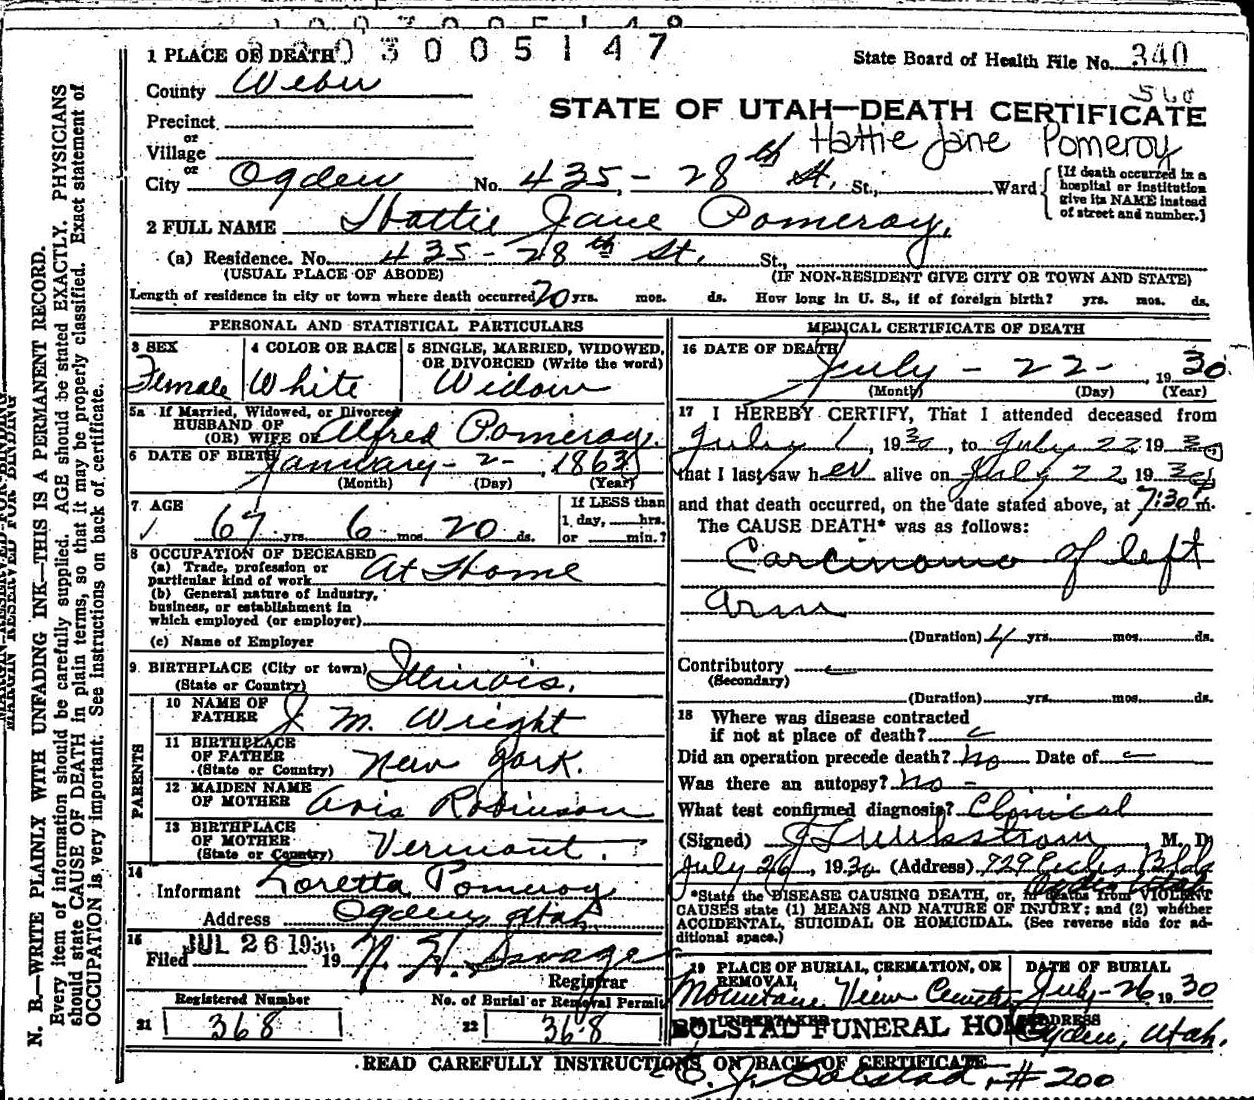 3005147
1 PLACE OF DEATH
State Board of Health File No. 340
County Weber
560
STATE OF UTAH—DEATH CERTIFICATE
Precinct
Hattie Jane Pomeroy
or
Village
or
City Ogden No. 435 - 28th St. St., Ward
[If death occurred in a hospital or institution give its NAME instead of street and number.]
2 FULL NAME Hattie Jane Pomeroy.
(a) Residence. No. 435 - 28th St. St.,
(USUAL PLACE OF ABODE) (IF NON-RESIDENT GIVE CITY OR TOWN AND STATE)
Length of residence in city or town where death occurred 20 yrs. mos. ds. How long in U. S., if of foreign birth? yrs. mos. ds.
PERSONAL AND STATISTICAL PARTICULARS
3 SEX 4 COLOR OR RACE 5 SINGLE, MARRIED, WIDOWED,
OR DIVORCED (Write the word)
Female White Widow
5a If Married, Widowed, or Divorced
HUSBAND OF
(OR) WIFE OF Alfred Pomeroy.
6 DATE OF BIRTH January - 2 - , 1863
(Month) (Day) (Year)
7 AGE If LESS than
67 yrs. 6 mos. 20 ds. 1 day, hrs.
or min.?
8 OCCUPATION OF DECEASED
(a) Trade, profession or
particular kind of work At Home
(b) General nature of industry,
business, or establishment in
which employed (or employer)
(c) Name of Employer
9. BIRTHPLACE (City or town)
(State or Country) Illinois.
PARENTS
10 NAME OF
FATHER J. M. Wright
11 BIRTHPLACE
OF FATHER
(State or Country) New York.
12 MAIDEN NAME
OF MOTHER Avis Robinson
13 BIRTHPLACE
OF MOTHER
(State or Country) Vermont.
14
Informant Loretta Pomeroy
Address Ogden, Utah.
15
Filed JUL 26 1930 19 Registrar
Registered Number No. of Burial or Removal Permit
21 368 22 368
MEDICAL CERTIFICATE OF DEATH
16 DATE OF DEATH
July - 22 - , 1930
(Month) (Day) (Year)
17 I HEREBY CERTIFY, That I attended deceased from
July 1, 1930, to July 22, 1930
that I last saw her alive on July 22, 1930
and that death occurred, on the date stated above, at 7:30 m.
The CAUSE DEATH* was as follows:
Carcinoma of left
Arm
(Duration) 4 yrs. mos. ds.
Contributory
(Secondary)
(Duration) yrs. mos. ds.
18 Where was disease contracted
if not at place of death?
Did an operation precede death? No Date of
Was there an autopsy? No -
What test confirmed diagnosis? Clinical
(Signed) M. D.
July 26, 1930 (Address) 729 Eccles Bldg
Ogden Utah
*State the DISEASE CAUSING DEATH, or, in deaths from VIOLENT
CAUSES state (1) MEANS AND NATURE OF INJURY; and (2) whether
ACCIDENTAL, SUICIDAL OR HOMICIDAL. (See reverse side for ad-
ditional space.)
19 PLACE OF BURIAL, CREMATION, OR DATE OF BURIAL
REMOVAL
Mountain View Cemetery July - 26 1930
20 UNDERTAKER ADDRESS
BOLSTAD FUNERAL HOME Ogden, Utah.
READ CAREFULLY INSTRUCTIONS ON BACK OF CERTIFICATE
Bolstad, # 200
MARGIN RESERVED FOR BINDING
N. B.—WRITE PLAINLY WITH UNFADING INK—THIS IS A PERMANENT RECORD.
Every item of information should be carefully supplied. AGE should be stated EXACTLY. PHYSICIANS
should state CAUSE OF DEATH in plain terms, so that it may be properly classified. Exact statement of
OCCUPATION is very important. See instructions on back of certificate.